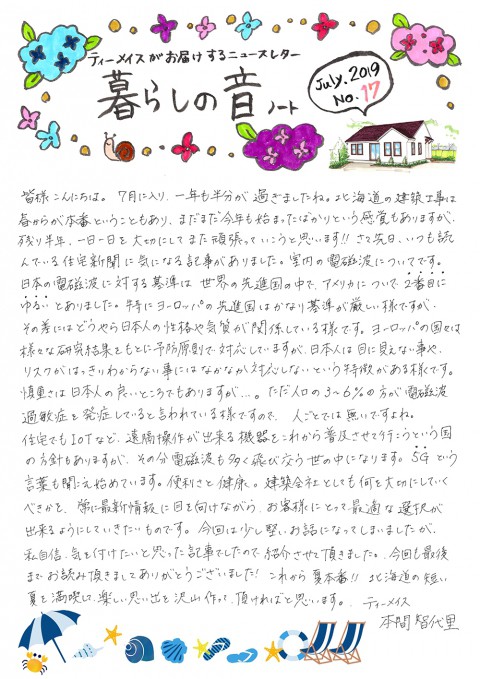 ティーメイスがお届けするニュースレター
暮らしの音ノート
July. 2019
No. 17
皆様こんにちは。7月に入り、一年も半分が過ぎましたね。北海道の建築工事は
春からが本番ということもあり、まだまだ今年も始まったばかりという感覚もありますが、
残り半年、一日一日を大切にしてまた頑張っていこうと思います!!さて先日、いつも読
んでいる住宅新聞に気になる記事がありました。室内の電磁波についてです。
日本の電磁波に対する基準は世界の先進国の中で、アメリカについで2番目に
ゆるいとありました。特にヨーロッパの先進国はかなり基準が厳しい様ですが、
その差にはどうやら日本人の性格や気質が関係している様です。ヨーロッパの国々は
様々な研究結果をもとに予防原則で対応していますが、日本人は目に見えない事や、
リスクがはっきりわからない事にはなかなか対応しないという特徴がある様です。
慎重さは日本人の良いところでもありますが…。ただ人口の3~6%の方が電磁波
過敏症を発症していると言われている様ですので、人ごとでは無いですよね。
住宅でもIoTなど、遠隔操作が出来る機器をこれから普及させて行こうという国
の方針もありますが、その分電磁波も多く飛び交う世の中になります。5Gという
言葉も聞こえ始めています。便利さと健康。建築会社としても何を大切にしていく
べきかを、常に最新情報に目を向けながら、お客様にとって最適な選択が
出来るようにしていきたいものです。今回は少し堅いお話になってしまいましたが、
私自信、気を付けたいと思った記事でしたので紹介させて頂きました。今回も最後
までお読み頂きましてありがとうございました!これから夏本番!!北海道の短い
夏を満喫し、楽しい思い出を沢山作って頂ければと思います。ティーメイス
本間智代里